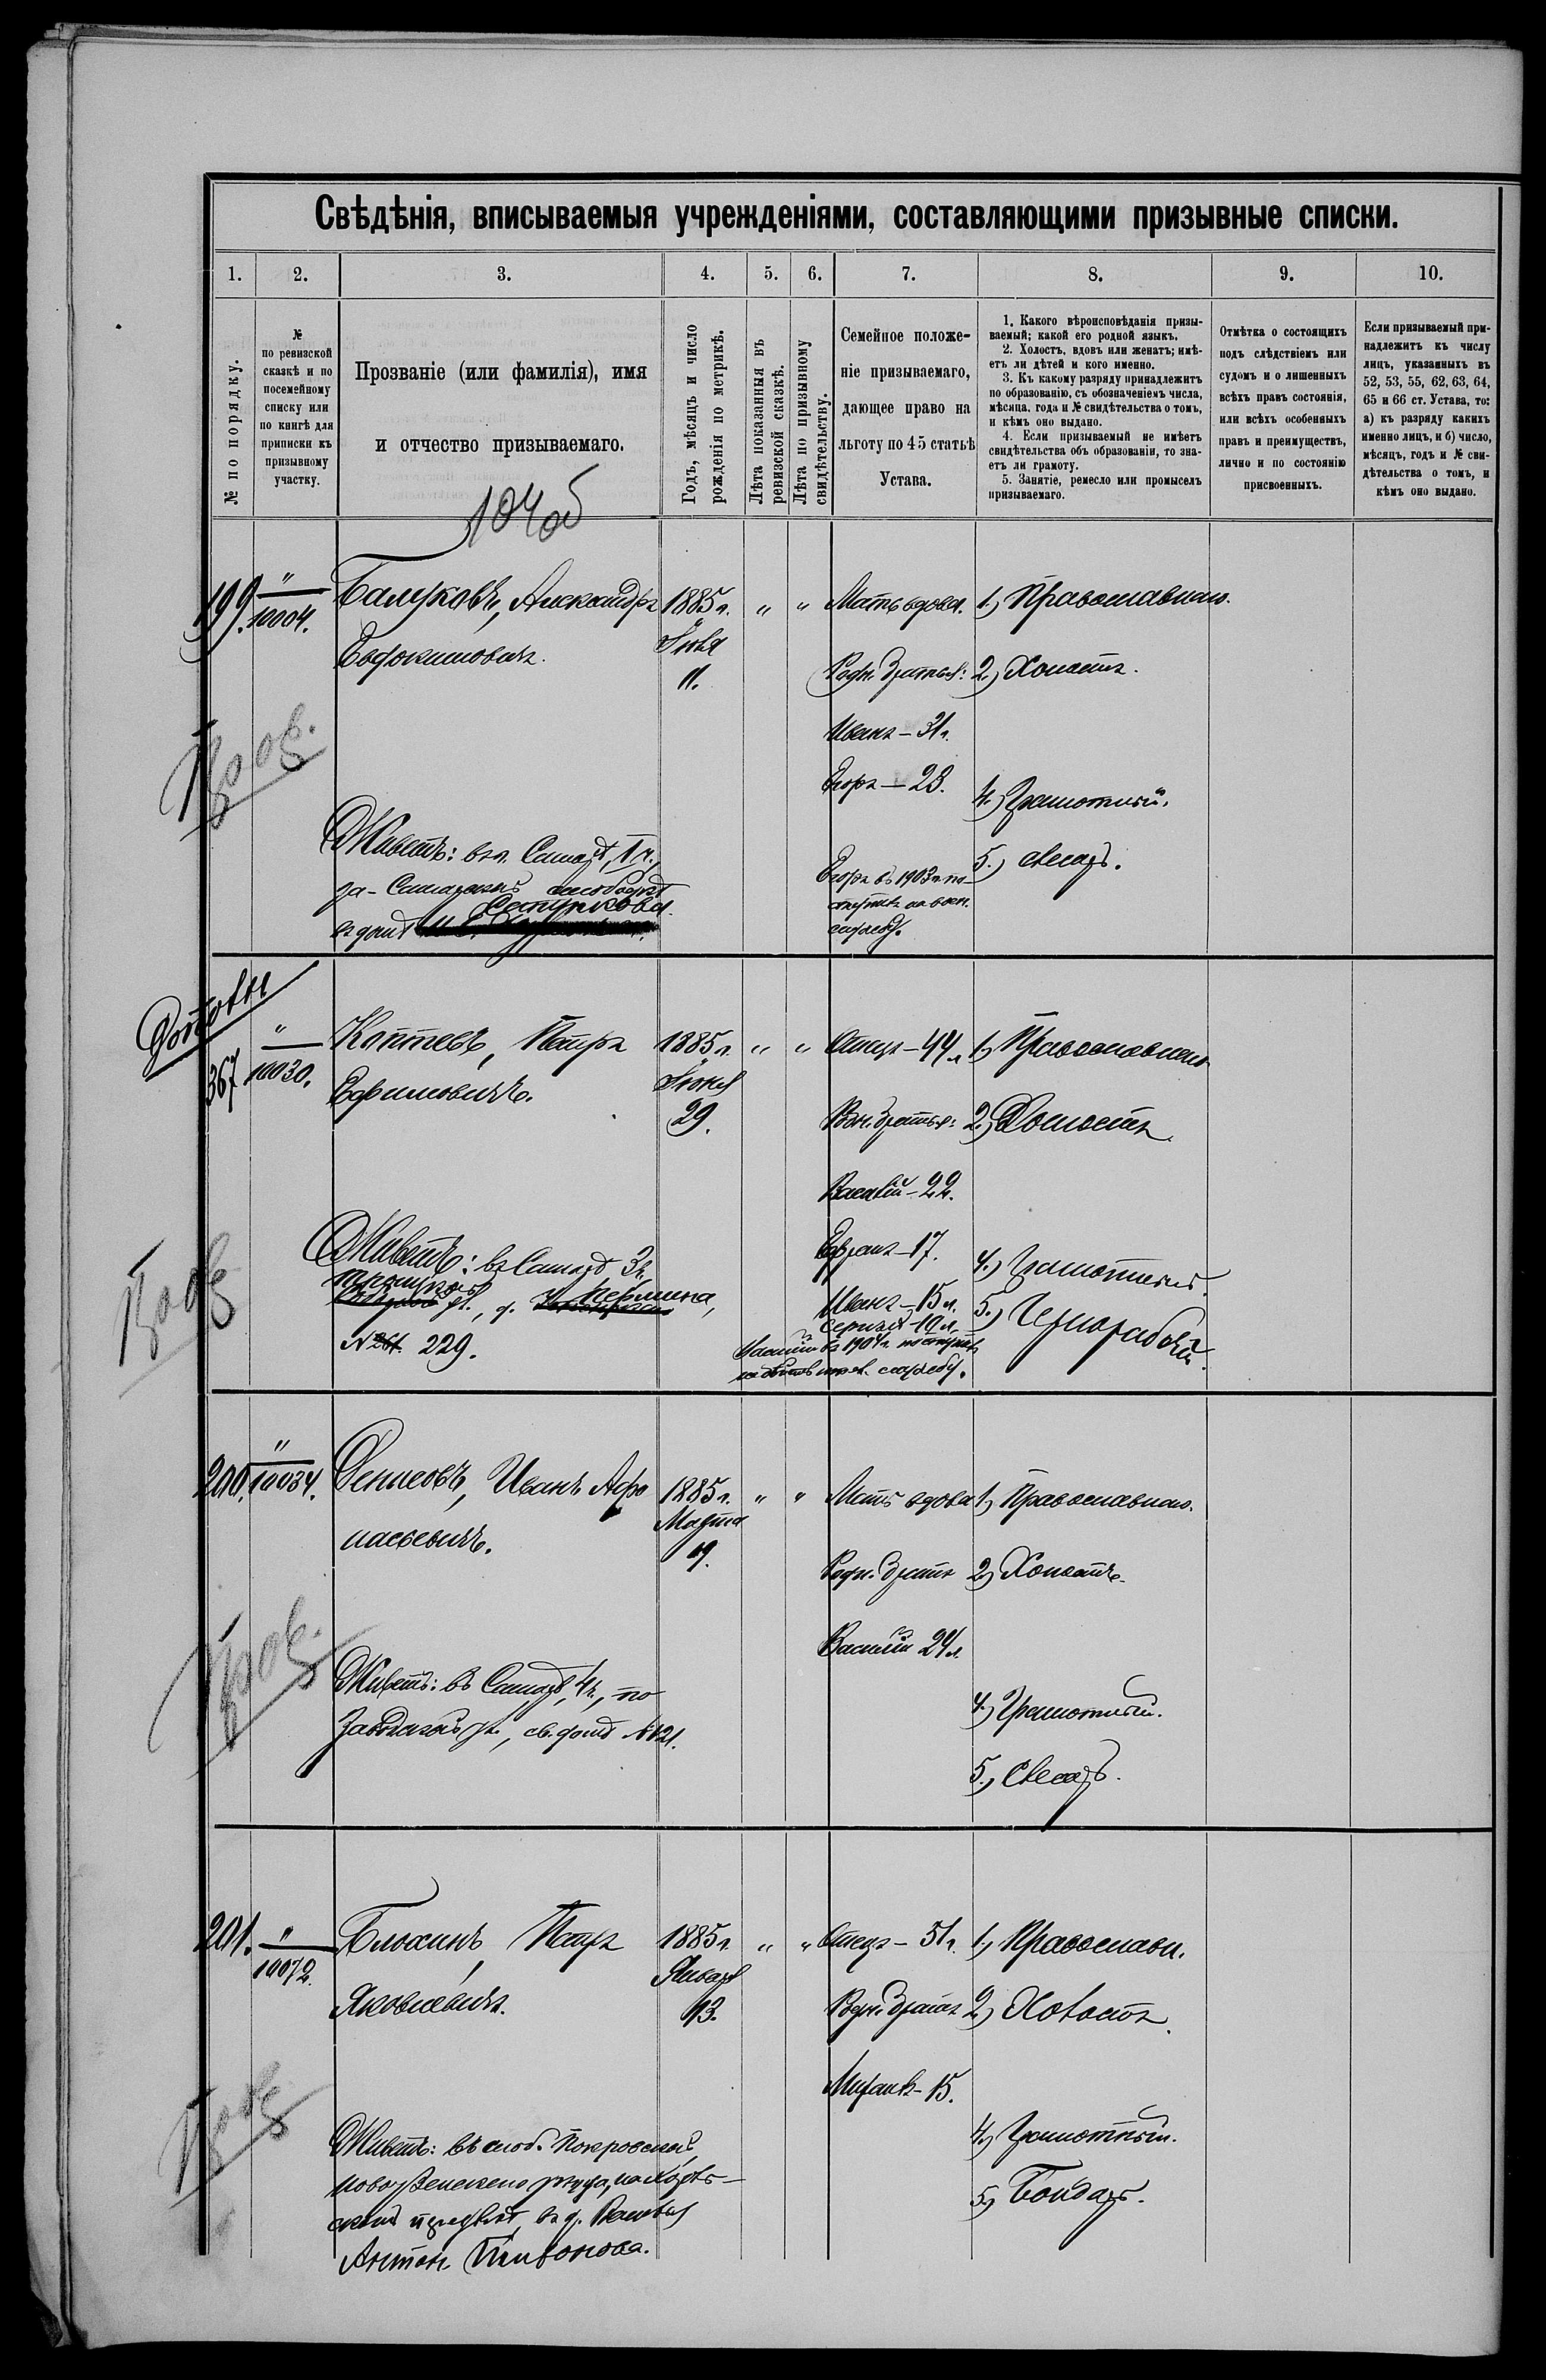 Свѣдѣнія, вписываемыя учрежденіями, составляющими призывные списки.
1.
2.
3.
4.
5.
6.
7.
8.
9.
10.
№ по порядку.
№
по ревизской
сказкѣ и по
посемейному
списку или
по книгѣ для
приписки къ
призывному
участку.
Прозваніе (или фамилія), имя
и отчество призываемаго.
Годъ, мѣсяцъ и число
рожденія по метрикѣ.
Лѣта показанныя въ
ревизской сказкѣ.
Лѣта по призывному
свидѣтельству.
Семейное положе-
ніе призываемаго,
дающее право на
льготу по 45 статьѣ
Устава.
1. Какого вѣроисповѣданія призы-
ваемый; какой его родной языкъ.
2. Холостъ, вдовъ или женатъ; имѣ-
етъ ли дѣтей и кого именно.
3. Къ какому разряду принадлежитъ
по образованію, съ обозначеніемъ числа,
мѣсяца, года и № свидѣтельства о томъ,
и кѣмъ оно выдано.
4. Если призываемый не имѣетъ
свидѣтельства объ образованіи, то зна-
етъ ли грамоту.
5. Занятіе, ремесло или промыселъ
призываемаго.
Отмѣтка о состоящихъ
подъ слѣдствіемъ или
судомъ и о лишенныхъ
всѣхъ правъ состоянія,
или всѣхъ особенныхъ
правъ и преимуществъ,
лично и по состоянію
присвоенныхъ.
Если призываемый при-
надлежитъ къ числу
лицъ, указанныхъ въ
52, 53, 55, 62, 63, 64,
65 и 66 ст. Устава, то:
а) къ разряду какихъ
именно лицъ, и б) число,
мѣсяцъ, годъ и № сви-
дѣтельства о томъ, и
кѣмъ оно выдано.
104об
199.
"
10004.
Александръ
Евдокимовичъ.
1885 г.
11.
"
"
Мать вдова.
Родн. братья:
Иванъ – 31 г.
Егоръ – 23.
Егоръ въ 1903 г. по-
ступилъ на воен.
службу.
1.) Православнаго.
2.) Холостъ.
4.) Грамотный.
5.) слесарь.
Живетъ: въ г. Самарѣ, 1 ч.,
въ домѣ
367
"
10030.
Коптевъ, Петръ
Ефимовичъ.
1885 г.
Іюня
29.
"
"
Отецъ – 44 л.
братья:
Василій – 22.
17.
Иванъ – 15 л.
Сергѣй – 10 л.
Василій въ 1904 г. поступилъ
службу.
1.) Православнаго
2.) Холостъ.
4.) Грамотный.
5.) Чернорабочій.
Живетъ: въ Самарѣ 3 ч.,
№ 229.
200.
"
10034.
Денисовъ, Иванъ Афа
насьевичъ.
1885 г.
Марта
19.
"
"
Мать вдова
Родн. братъ
Василій 24 л.
1.) Православнаго.
2.) Холостъ.
4.) Грамотный.
5.) Слесарь.
Живетъ: въ Самарѣ, 4 ч., по
Заводской ул., св. домѣ № 21.
201.
"
10072.
Блохинъ, Петръ
Яковлевичъ.
1885 г.
Января
13.
"
"
Отецъ – 51 г.
Родн. братъ
Михаилъ – 15.
1.) Православн.
2.) Холостъ.
4.) Грамотный.
5.) Бондарь.
Живетъ: въ слоб. Покровской,
Новоузенскаго уѣзда,
въ д.